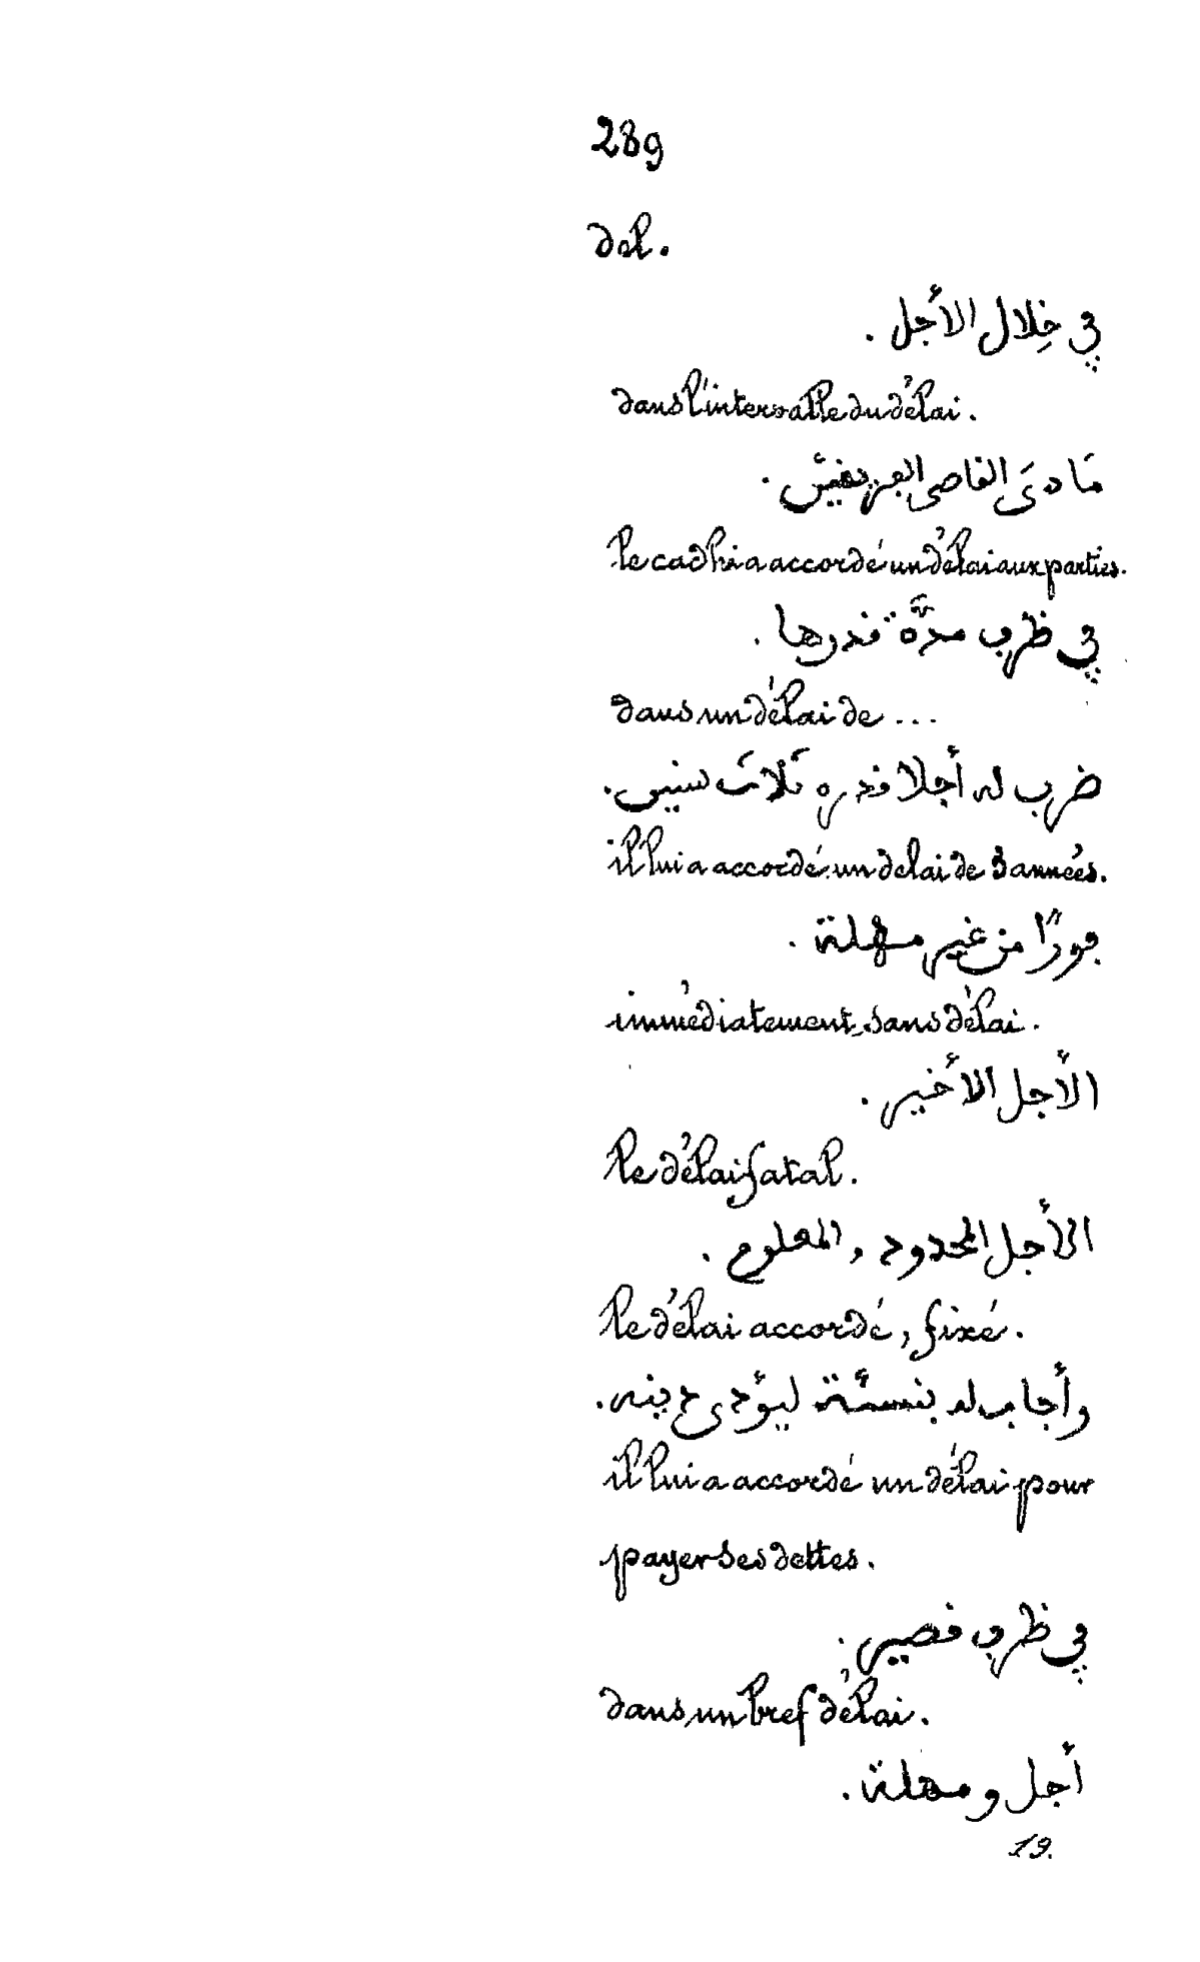 289
dél.
في خِلال الأجل.
dans l'intervalle du délai.
مَادىَ القاضى الفريقين.
le cadhi a accordé un délai aux parties.
في ظرف مدَّة قدرها.
dans un délai de ...
ضرب له أجلا قدره ثلاث سنين.
il lui a accordé un delai de 3 années.
فورًا من غير مهلة.
immédiatement, sans délai.
الأجل الأخير.
le délai fatal.
الأجل المحدود, المعلوم.
le délai accordé, fixé.
وأجابه له بنسئة ليؤدى دينه.
il lui a accordé un délai pour
payer ses dettes.
في ظرف قصير.
dans un bref délai.
أجل و مهلة.
19.